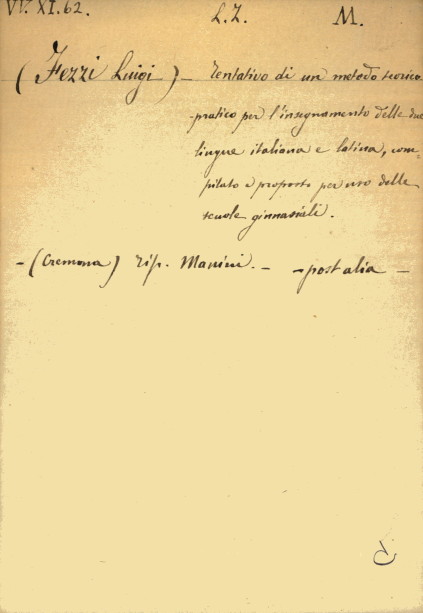 VV. XI. 62. L. I. M.
(Fezzi Luigi) – Tentativo di un metodo teorico
-pratico per l'insegnamento delle due
lingue italiana e latina, com-
pilato e proposto per uso delle
scuole ginnasiali.
– (Cremona) Tip. Manini. – – post alia –